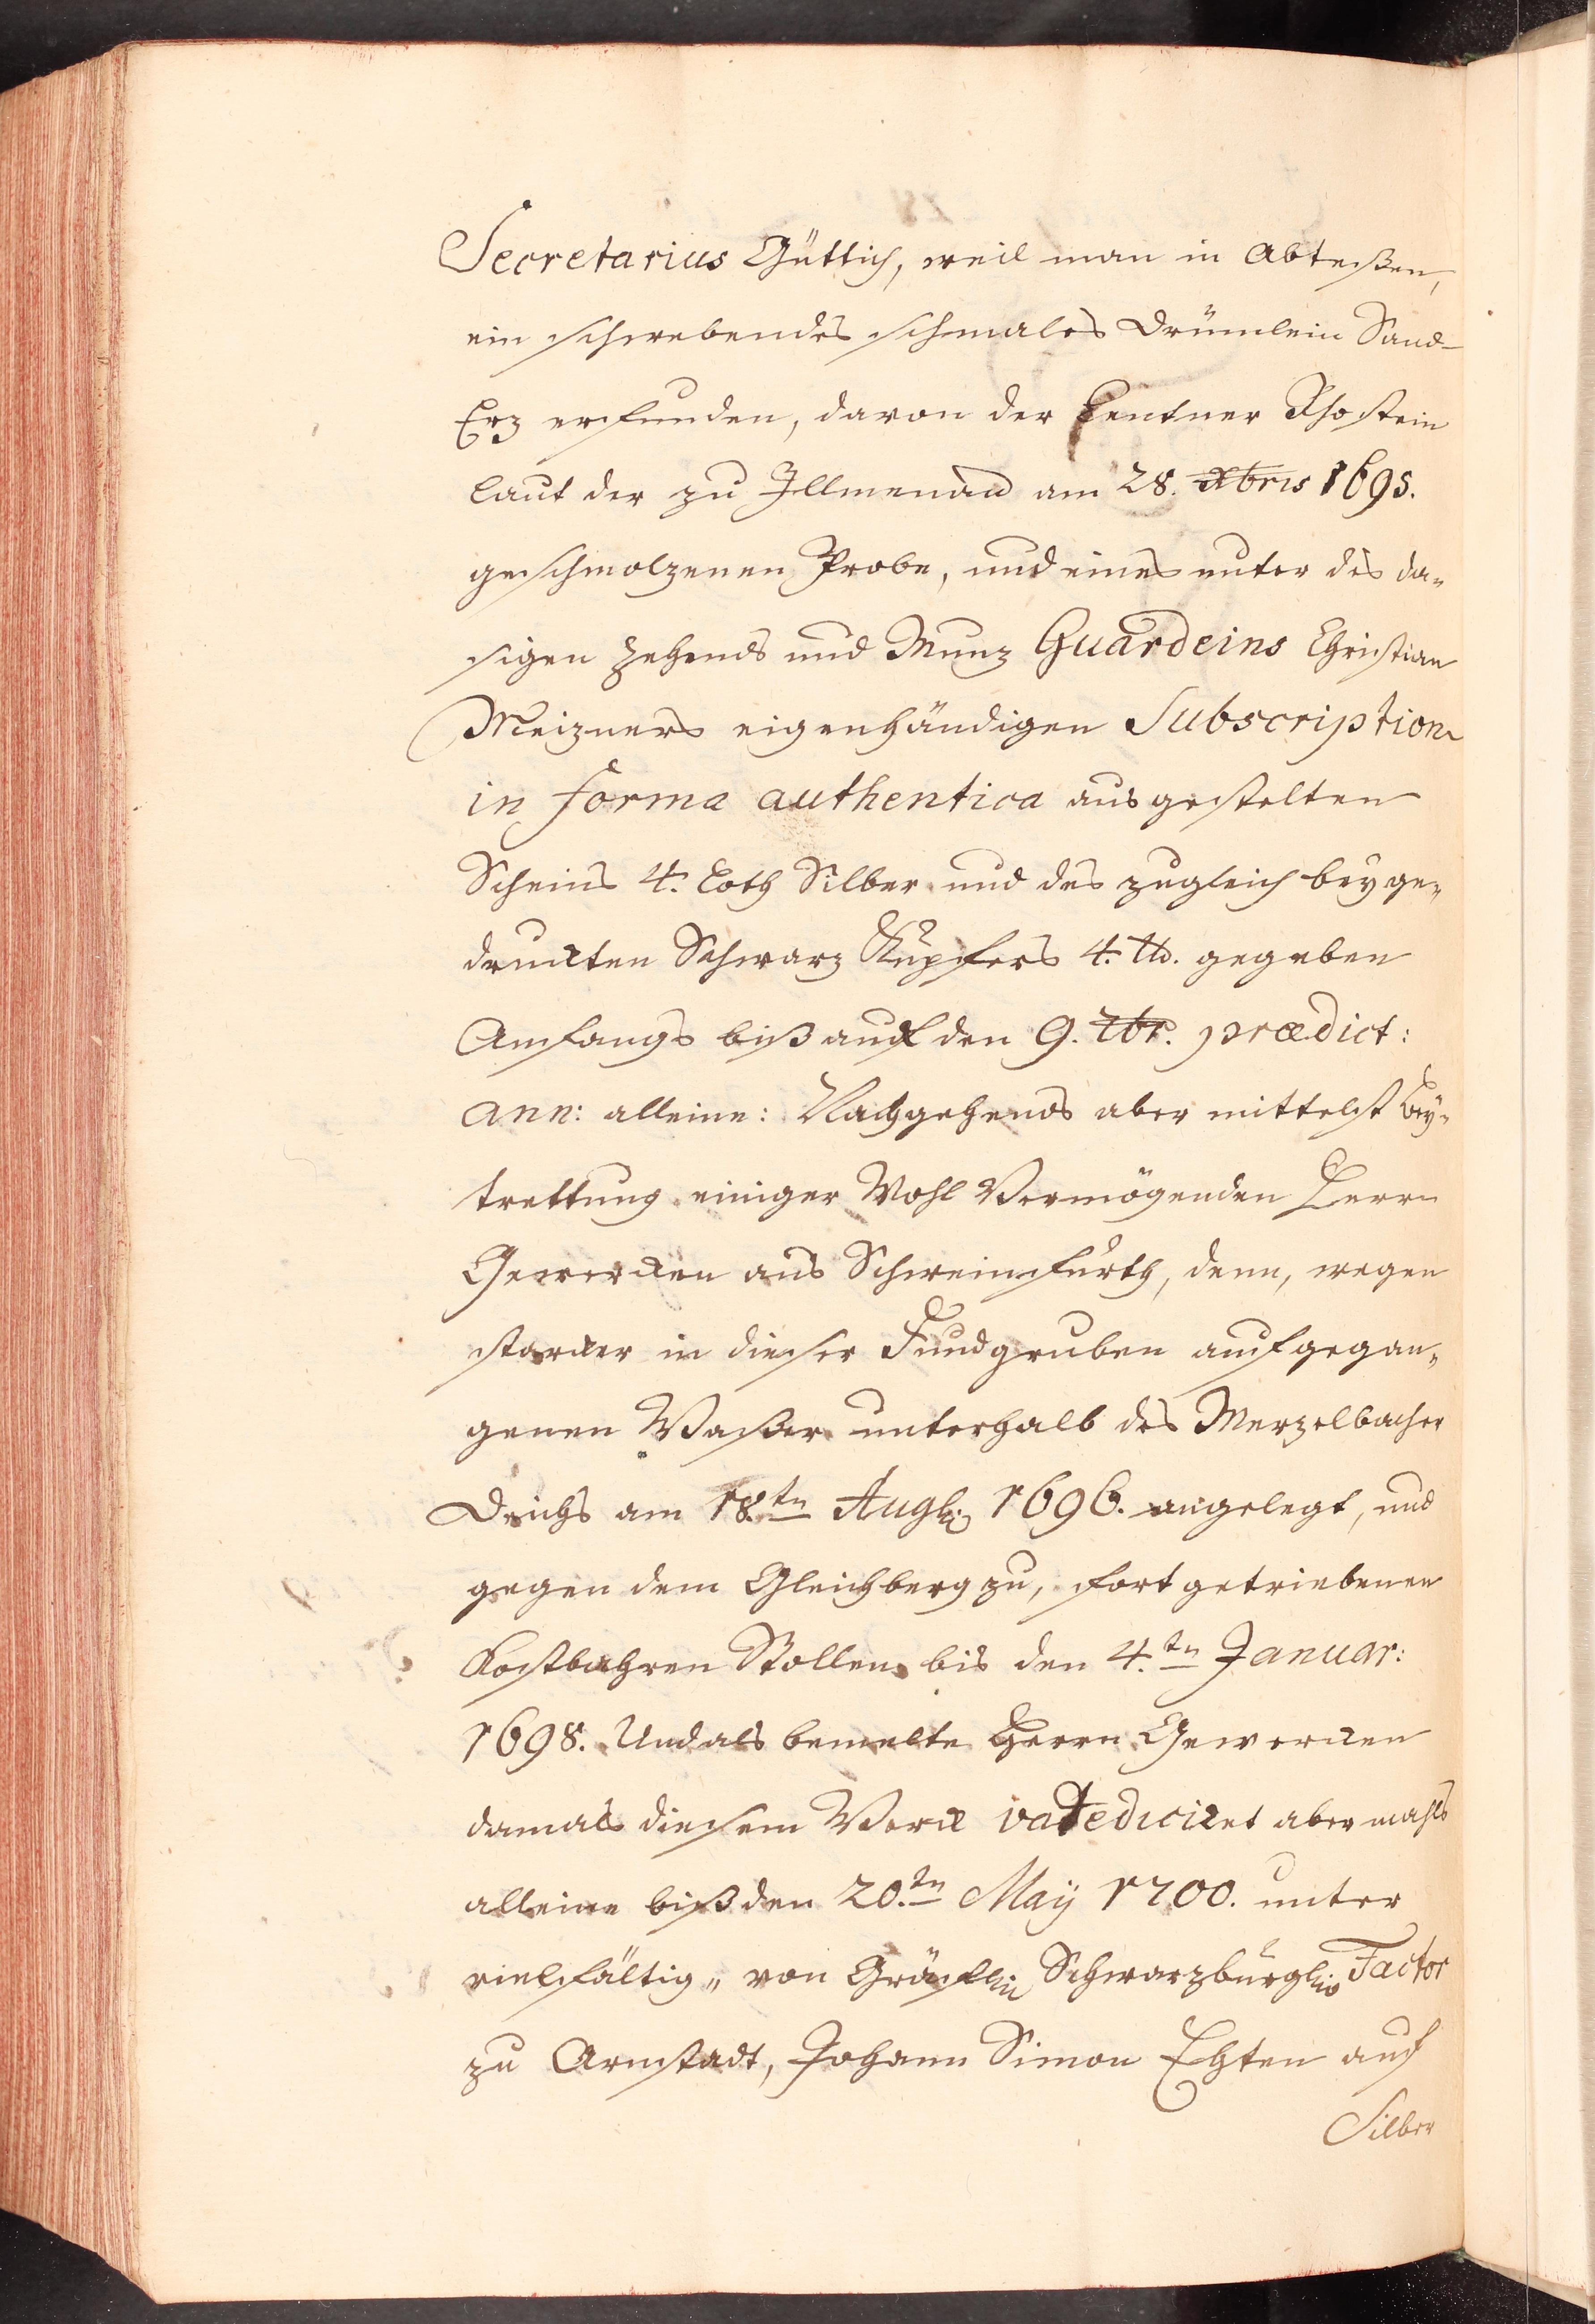 Secretarius Güttich, weil man in Abteußen,
ein schwebendes schmales Drümlein Sand-
Erz erfunden, davon der Centner Rhostein
laut der zu Illmenau am 28. Xbris 1695.
geschmolzenen Probe, und eines unter des da„
sigen Zehends und Munz Guardeins Christian
Meizners eigenhändigen Subscription
in forma authentica ausgestelten
Scheins 4. Loth Silber und des zugleich beyge„
druckten Schwarz Kupfers 4. ℔. gegeben
Anfangs biß auf den 9. 7br. prædict:
ann: alleine: Nachgehends aber mittelst Bey„
trettung einiger Wohl Vermögenden Herrn
Gewercken aus Schweinfurth, denn, wegen
starcker in dieser Fundgruben aufgegan„
genen Waßer unterhalb des Merzelbacher
Deichs am 18.tn Augh: 1696. angelegt, und
gegen dem Gleichberg zu, fortgetriebenen
Kostbahren Stollens bis den 4.tn Januar:
1698. Und als bemelte Herrn Gewercken
damals diesem Werck valediciret abermahls
alleine biß den 20.tn May 1700. unter
vielfältig„ von Gräfflin Schwarzburgln Factor
zu Arnstadt, Johann Simon Ehten auf
Silber